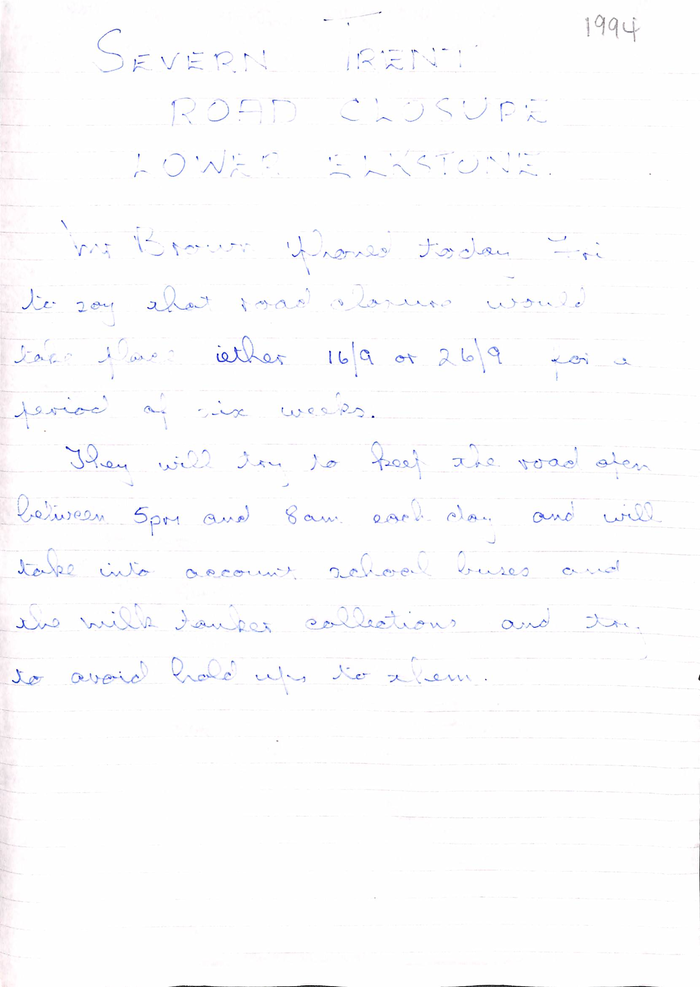 1994
SEVERN TRENT
ROAD CLOSURE
LOWER ELKSTONE.
Mr Brown 'phoned today Fri
to say that road closure would
take place iether 16/9 or 26/9 for a
period of six weeks.
They will try to keep the road open
between 5pm and 8am each day and will
take into account school buses and
the milk tanker collections and try
to avoid hold ups to them.